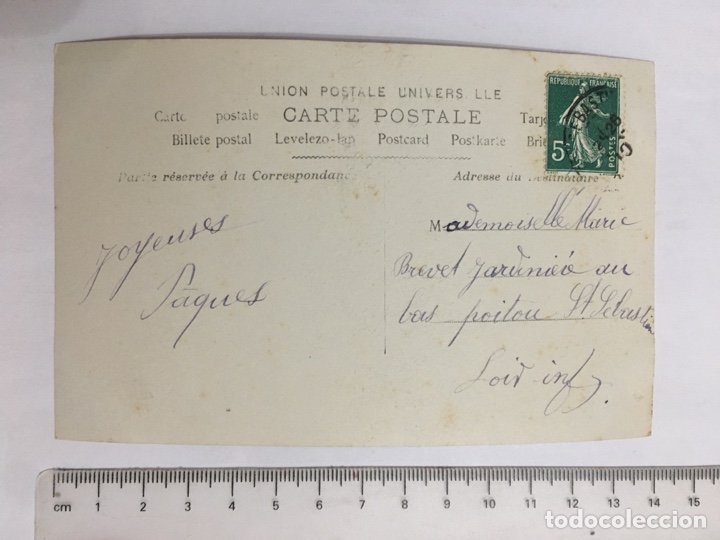 UNION POSTALE UNIVERS LLE
Carte postale CARTE POSTALE Tarj
Billete postal Levelezo-lap Postcard Postkarte Brie
Partie réservée à la Correspondance
Adresse du Destinataire
REPUBLIQUE FRANÇAISE
5c
POSTES
Joyeuses
Pâques
Mademoiselle Marie
Brevet Jardinière au
bas poitou St Sebastien
Loir-inf
cm 1 2 3 4 5 6 7 8 9 10 11 12 13 14 15
todocoleccion.net